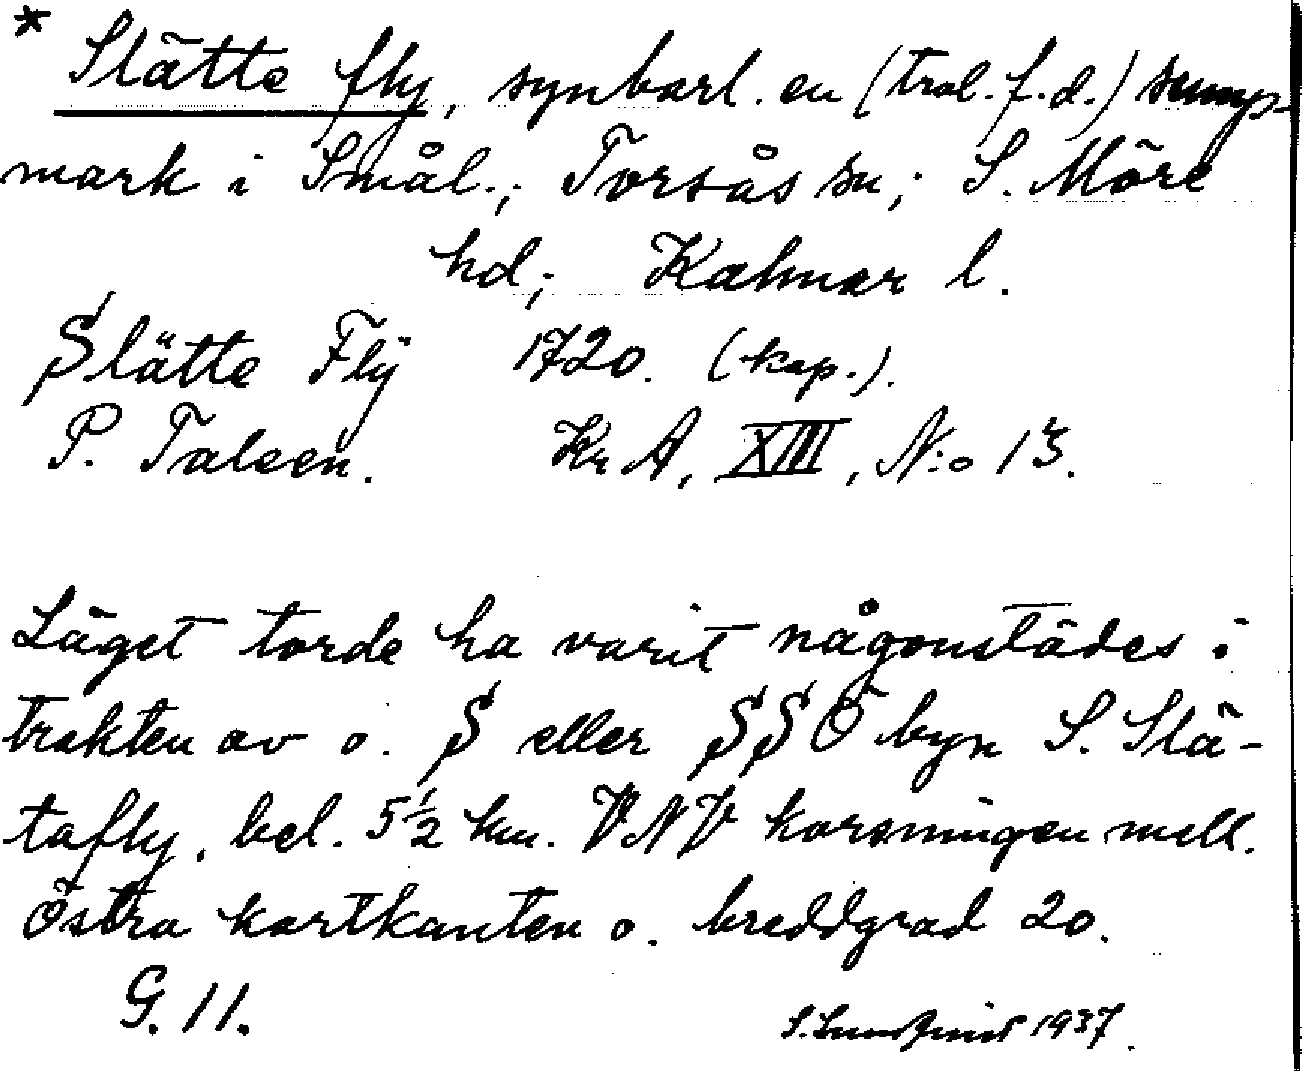 * Slätte fly, synbarl. en (trol. f.d.) sump-
mark i Smål.; Torsås sn; S. Möre
hd; Kalmar l.
Slätte Flÿ 1720. (kop.).
P. Taleen. Kr A, XIII, N:o 13.
Läget torde ha varit någonstädes i
trakten av o. S eller SSO byn S. Slä-
tafly, bel. 5 1/2 km. VNV korsningen mell.
östra kartkanten o. breddgrad 20.
G. 11.
S. Lundqvist 1937.